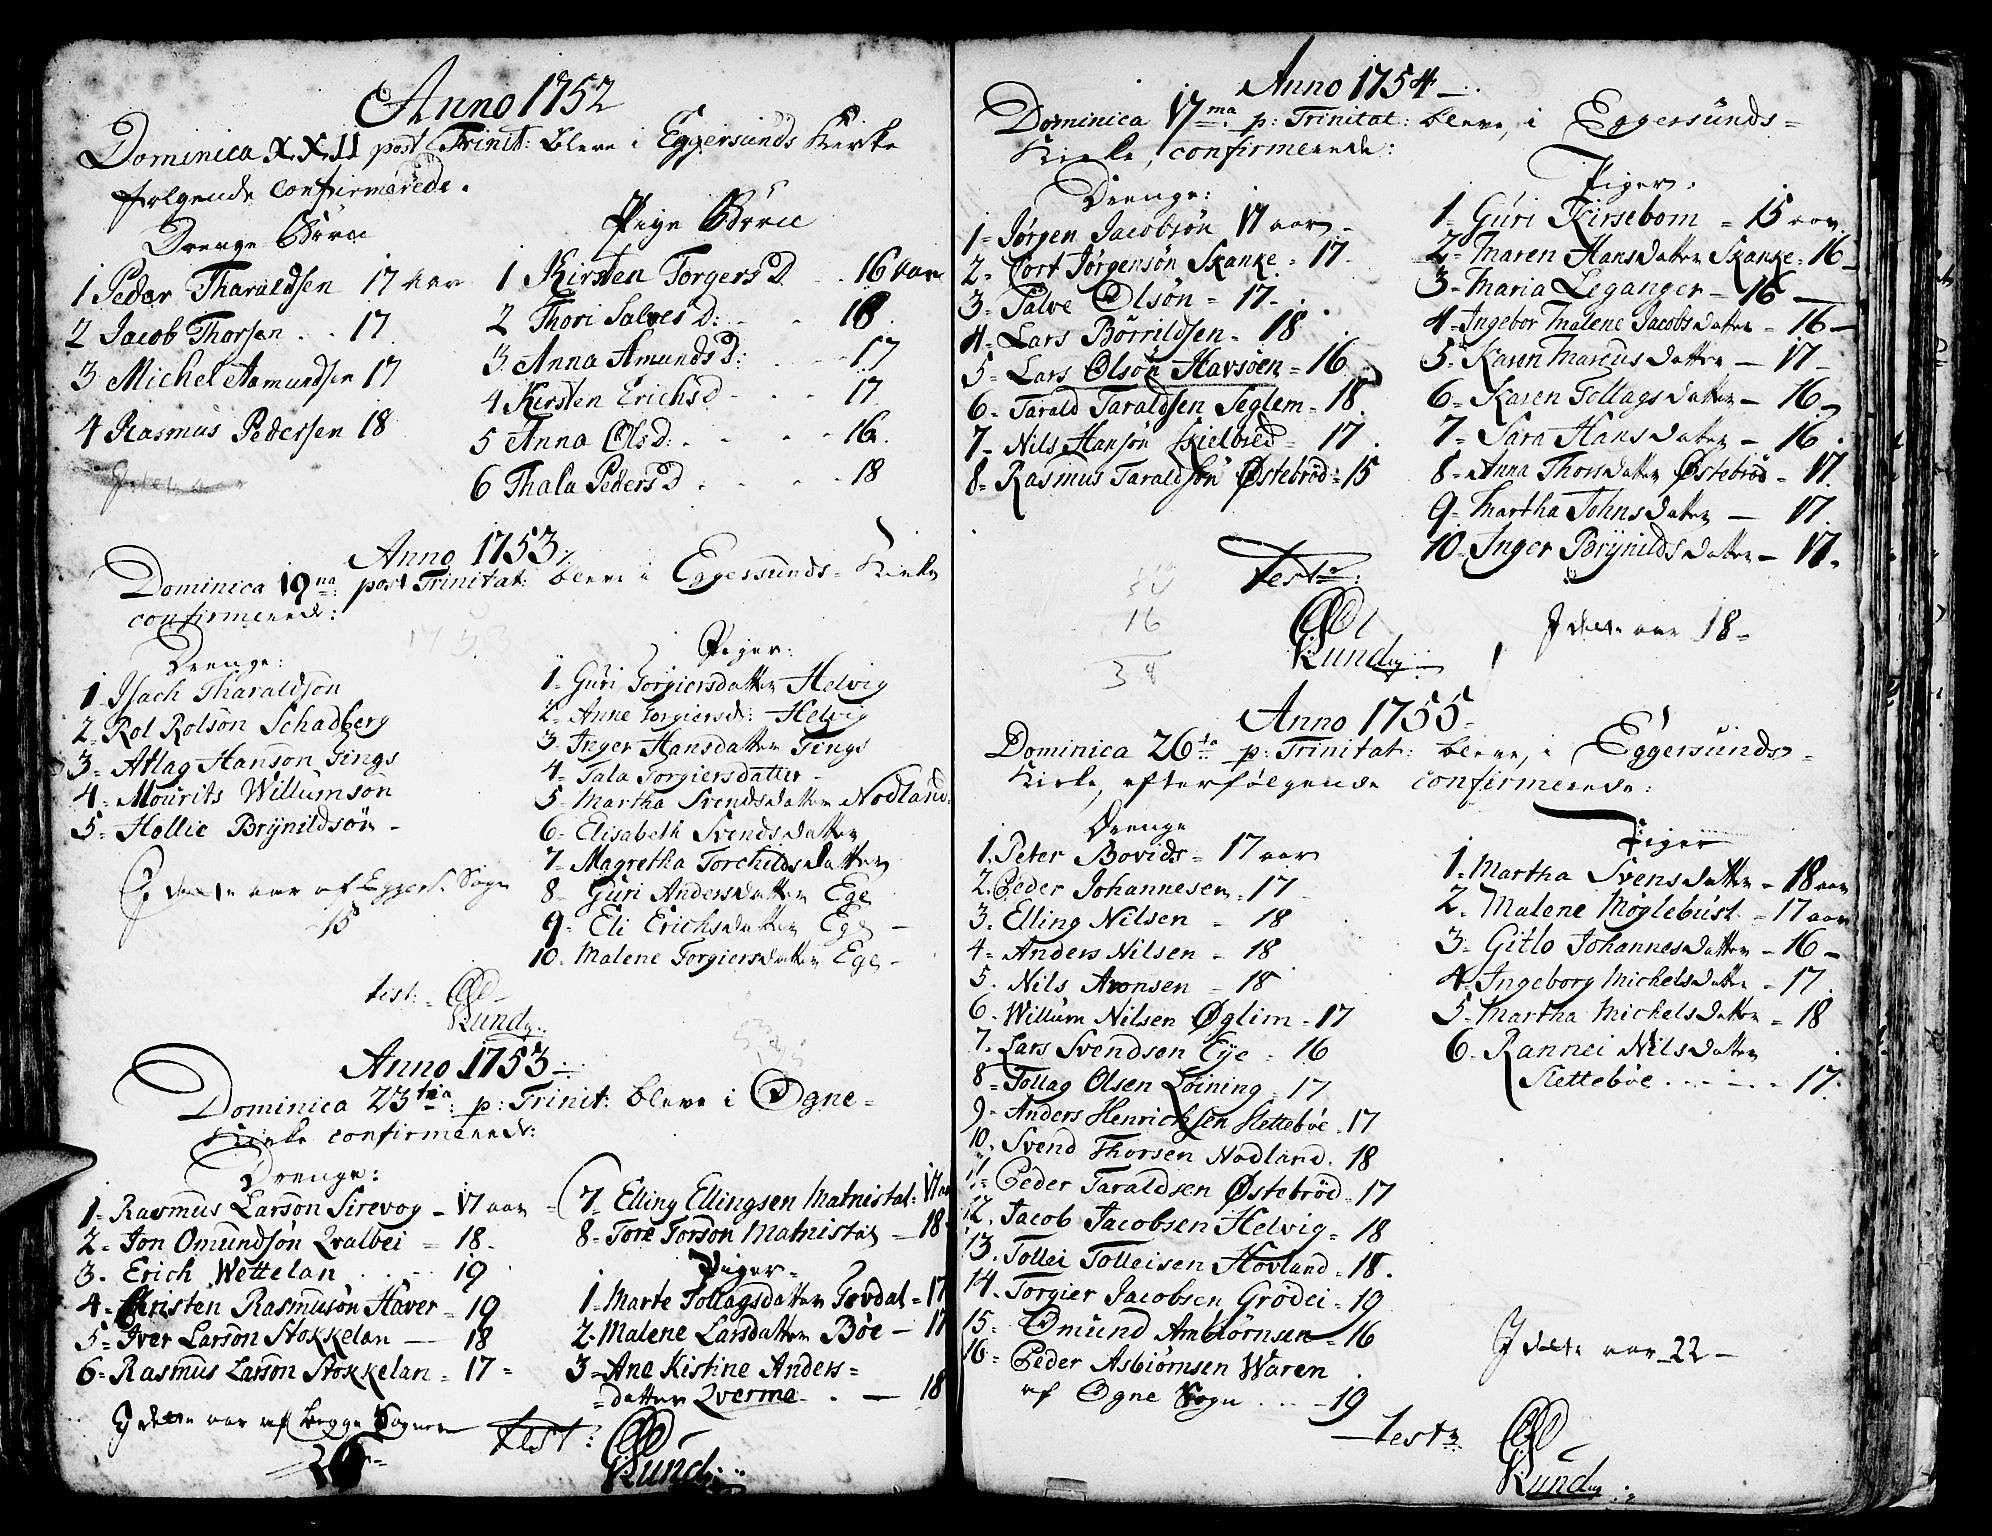 Anno 1752
Dominica XXII post Trinit: bleve i Eggersunds Kirke
følgende confirmerede.
Drenge Børn
1 Peder Tharaldsen 17 aar
2 Jacob Thorsen .. 17
3 Michel Aamundsen 17
4 Rasmus Pedersen 18
Pige Børn
1 Kirsten Torgers D .. 16 aar
2 Thori Salves D: .. 18
3 Anna Amunds D: .. 17
4 Kirsten Erichs D - - - 17
5 Anna Ols D: . - - - 16.
6 Thala Peders D . . . - 18
Anno 1753
Dominica 19na post Trinitat: bleve i Eggersunds- Kirke
confirmerede:
Drenge:
1- Isach Tharaldson
2- Rol Rolson Schadberg
3- Atlag Hanson Tings
4- Mourits Willumson
5- Hollie Brÿnildsön -
I dette aar af Eggers. Sogn
15
Piger:
1- Guri Torgiersdatter Helvig
2- Anne Torgiersd: Helvig
3- Inger Hansdatter Tings
4- Tala Torgiersdatter -
5- Martha Svendsdatter Nodland
6- Elisabeth Svendsdatter
7- Magretha Torchildsdatter
8- Guri Andersdatter Ege
9- Eli Erichsdatter Ege -
10- Malene Torgiersdatter Ege -
test:
Kund
Anno 1753
Dominica 23tia p: Trinit: bleve i Ogne=
Kirke confirmerede:
Drenge:
1- Rasmus Larson Sirevog - 17 aar
2- Jon Omundsön Qvalbei = 18-
3- Erich Wettelan . . - 19
4- Christen Rasmusön Haver = 19
5- Iver Larson Stokkelan — 18
6- Rasmus Larson Stokkelan = 17=
I dette aar af begge Sogner
26
7- Elling Ellingsen Matnistal: 17 aar
8- Tore Torson Matnistal - 18
Piger-
1- Marte Tollagsdatter Tovdal = 17
2- Malene Larsdatter Böe - 17
3- Ane Kistine Anders=
=datter Qverme . - 18
test:
Kund
Anno 1754
Dominica 17ma p: Trinitat: bleve, i Eggersunds=
Kirke, confirmerede:
Drenge:
1- Jørgen Jacobsön 17 aar -
2- Cort Jørgensön Skanke = 17-
3- Salve Olsön = 17-
4- Lars Börrildsen- 18
5- Lars Olsön Havsöen = 16
6- Tarald Taraldsen Seglem- 18
7- Nils Hansön Skielbred = 17.
8- Rasmus Taraldsön Østebröd = 15
Piger:
1- Guri Kirsebom = 15 aar
2- Maren Hansdatter Skanke = 16 -
3- Maria Leganger - 16 —
4- Ingebor Malene Jacobsdatter - 16 -
5- Karen Marcusdatter — 17 -
6- Karen Tollagsdatter - 16
7- Sara Hansdatter - 16.
8- Anna Thorsdatter Østebröd - 17.
9- Martha Johnsdatter — 17.
10- Inger Brÿnildsdatter - 17.
Test:
Kund
I dette aar 18-
16
38
Anno 1755
Dominica 26ta p: Trinitat: bleve, i Eggersunds=
Kirke, efterfølgende confirmerede:
Drenge
1. Peter Bovids= 17 aar
2. Peder Johannesen = 17-
3. Elling Nilsen - 18
4- Anders Nilsen - 18
5. Nils Aronsen = 18
6- Willum Nilsen Øglim - 17
7- Lars Svendsen Eÿe = 16
8- Tollag Olsen Löining - 17
9- Anders Henrichsen Slettebøe - 17
10. Svend Thorsen Nodland. 18
11- Peder Taraldsen Østebröd - 17
12. Jacob Jacobsen Helvig - 18
13. Tollei Tolleisen Hovland - 18.
14. Torgier Jacobsen Grödei - 19
15- Omund Ambiörnsen - 16
16- Peder Asbiörnsen Waren
af Ogne Sogn .. - 19
Piger
1. Martha Svensdatter - 18 aar
2- Malene Møglebust - 17 aar
3- Gitlo Johannesdatter - 16 -
4. Ingeborg Michelsdatter - 17.
5- Martha Michelsdatter = 18
6. Rannei Nilsdatter
Slettebøe . - - - 17.
I dette aar 22 -
test
Kund